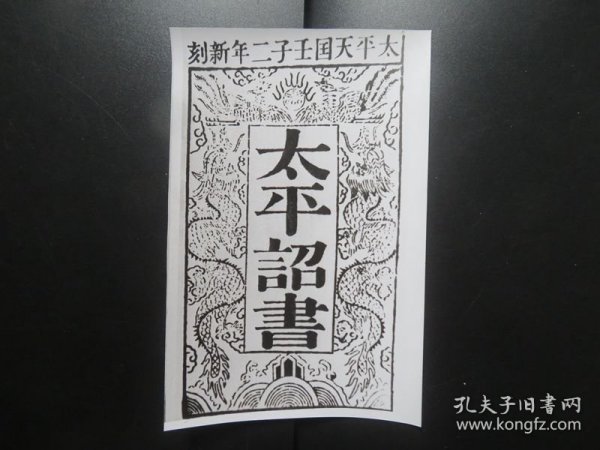 太平天囯壬子二年新刻
太平詔書
孔夫子旧書网
www.kongfz.com